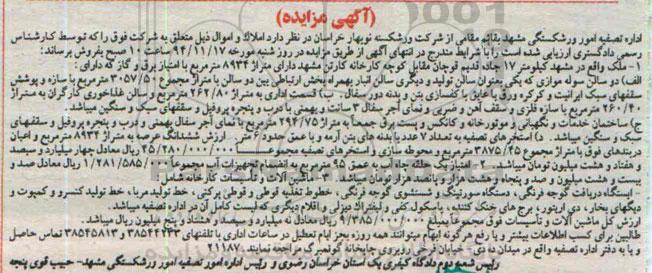 (آگهی مزایده)
اداره تصفیه امور ورشکستگی مشهد بقائم مقامی از شرکت ورشکسته نوبهار خراسان در نظر دارد املاک و اموال ذیل متعلق به شرکت فوق را که توسط کارشناس
رسمی دادگستری ارزیابی شده است را با شرایط مندرج در انتهای آگهی از طریق مزایده در روز شنبه مورخه ۹۴/۱۱/۱۷ ساعت ۱۰ صبح بفروش برساند:
۱- ملک واقع در مشهد کیلومتر ۱۷ جاده قدیم قوچان مقابل کوچه کارخانه کارتن مشهد دارای متراژ ۸۹۳۴ مترمربع با امتیاز برق و گاز که دارای:
الف) دو سالن سوله موازی که یکی بعنوان سالن تولید و دیگری سالن انبار بهمراه بخش ارتباطی بین دو سالن با متراژ مجموع ۳۰۵۷/۵۰ مترمربع با سازه و پوشش
سقفهای سبک ایرانیت و کرکره ورق با عایق با کفسازی بتن و بدنه دور سفال. ب) قسمت اداری به متراژ ۲۶۲/۸۰ مترمربع و سالن غذاخوری کارگران به متراژ
۲۶۰/۴۰ مترمربع با سازه فلزی و سقف آهن و ضربی و نمای آجر سفال ۳ سانت و بهمنی با درب و پنجره پروفیل و سقفهای سبک و سنگین میباشد.
ج) ساختمان خدمات و نگهبانی و موتورخانه و کانکس و پست برق جمعاً به متراژ ۲۹۴/۷۵ مترمربع با نمای آجر سفال بهمنی و درب و پنجره پروفیل و سقفهای
سبک و سنگین میباشد. د) استخرهای تصفیه به تعداد ۷ عدد با بدنه های بتن آرمه و با عمق حدود ۲/۶۰ متر. ارزش ششدانگ عرصه به متراژ ۸۹۳۴ مترمربع و اعیان
دربندهای فوق با متراژ مجموع ۳۸۷۵/۴۵ مترمربع و محوطه سازی و استخرهای تصفیه مجموعه مبلغ ۴۵/۲۸۰/۰۰۰/۰۰۰ ریال معادل چهار میلیارد و
پانصد و هشت میلیون تومان میباشد. ۲- امتیاز یک حلقه چاه آب به عمق ۹۵ مترمربع به انضمام تجهیزات آب مجموعاً ۱/۲۸۱/۵۸۵/۰۰۰ ریال معادل صد و
بیست و هشت میلیون و صد و پنجاه و هشت هزار و پانصد هزار تومان میباشد. ماشین آلات و تاسیسات کارخانه شامل:
ایستگاه دریافت گوجه فرنگی، دستگاه سورتینگ و شستشوی گوجه فرنگی، خطوط تغذیه قوطی و قوطی پرکنی، خط تولید مربا، خط تولید کنسرو و کمپوت و
دیگهای بخار، دی اریتور، برج های خنک کننده، باسکول کف، لیفتراک دیزلی و اقلام دیگری که لیست کامل آن در اداره تصفیه میباشد.
ارزش کل ماشین آلات و تأسیسات فوق مجموعاً بمبلغ ۹/۳۸۵/۰۰۰/۰۰۰ ریال معادل نه میلیارد و سیصد و هشتاد و پنج میلیون ریال میباشد.
طالبین برای کسب اطلاعات بیشتر و یا رفع هرگونه ابهام میتوانند همه روزه بجز ایام تعطیل در ساعات اداری با تلفنهای ۳۸۵۴۴۴۳۳ و ۳۸۵۴۵۸۱۳ تماس حاصل
و یا به دفتر اداره تصفیه واقع در میدان ده دی- خیابان فرخی روبروی چاپخانه گوتمبرگ مراجعه نمایند. ۲۱۱۸۷
رئیس شعبه دوم دادگاه کیفری یک استان خراسان رضوی و رئیس اداره امور تصفیه امور ورشکستگی مشهد- حبیب قوی پنجه